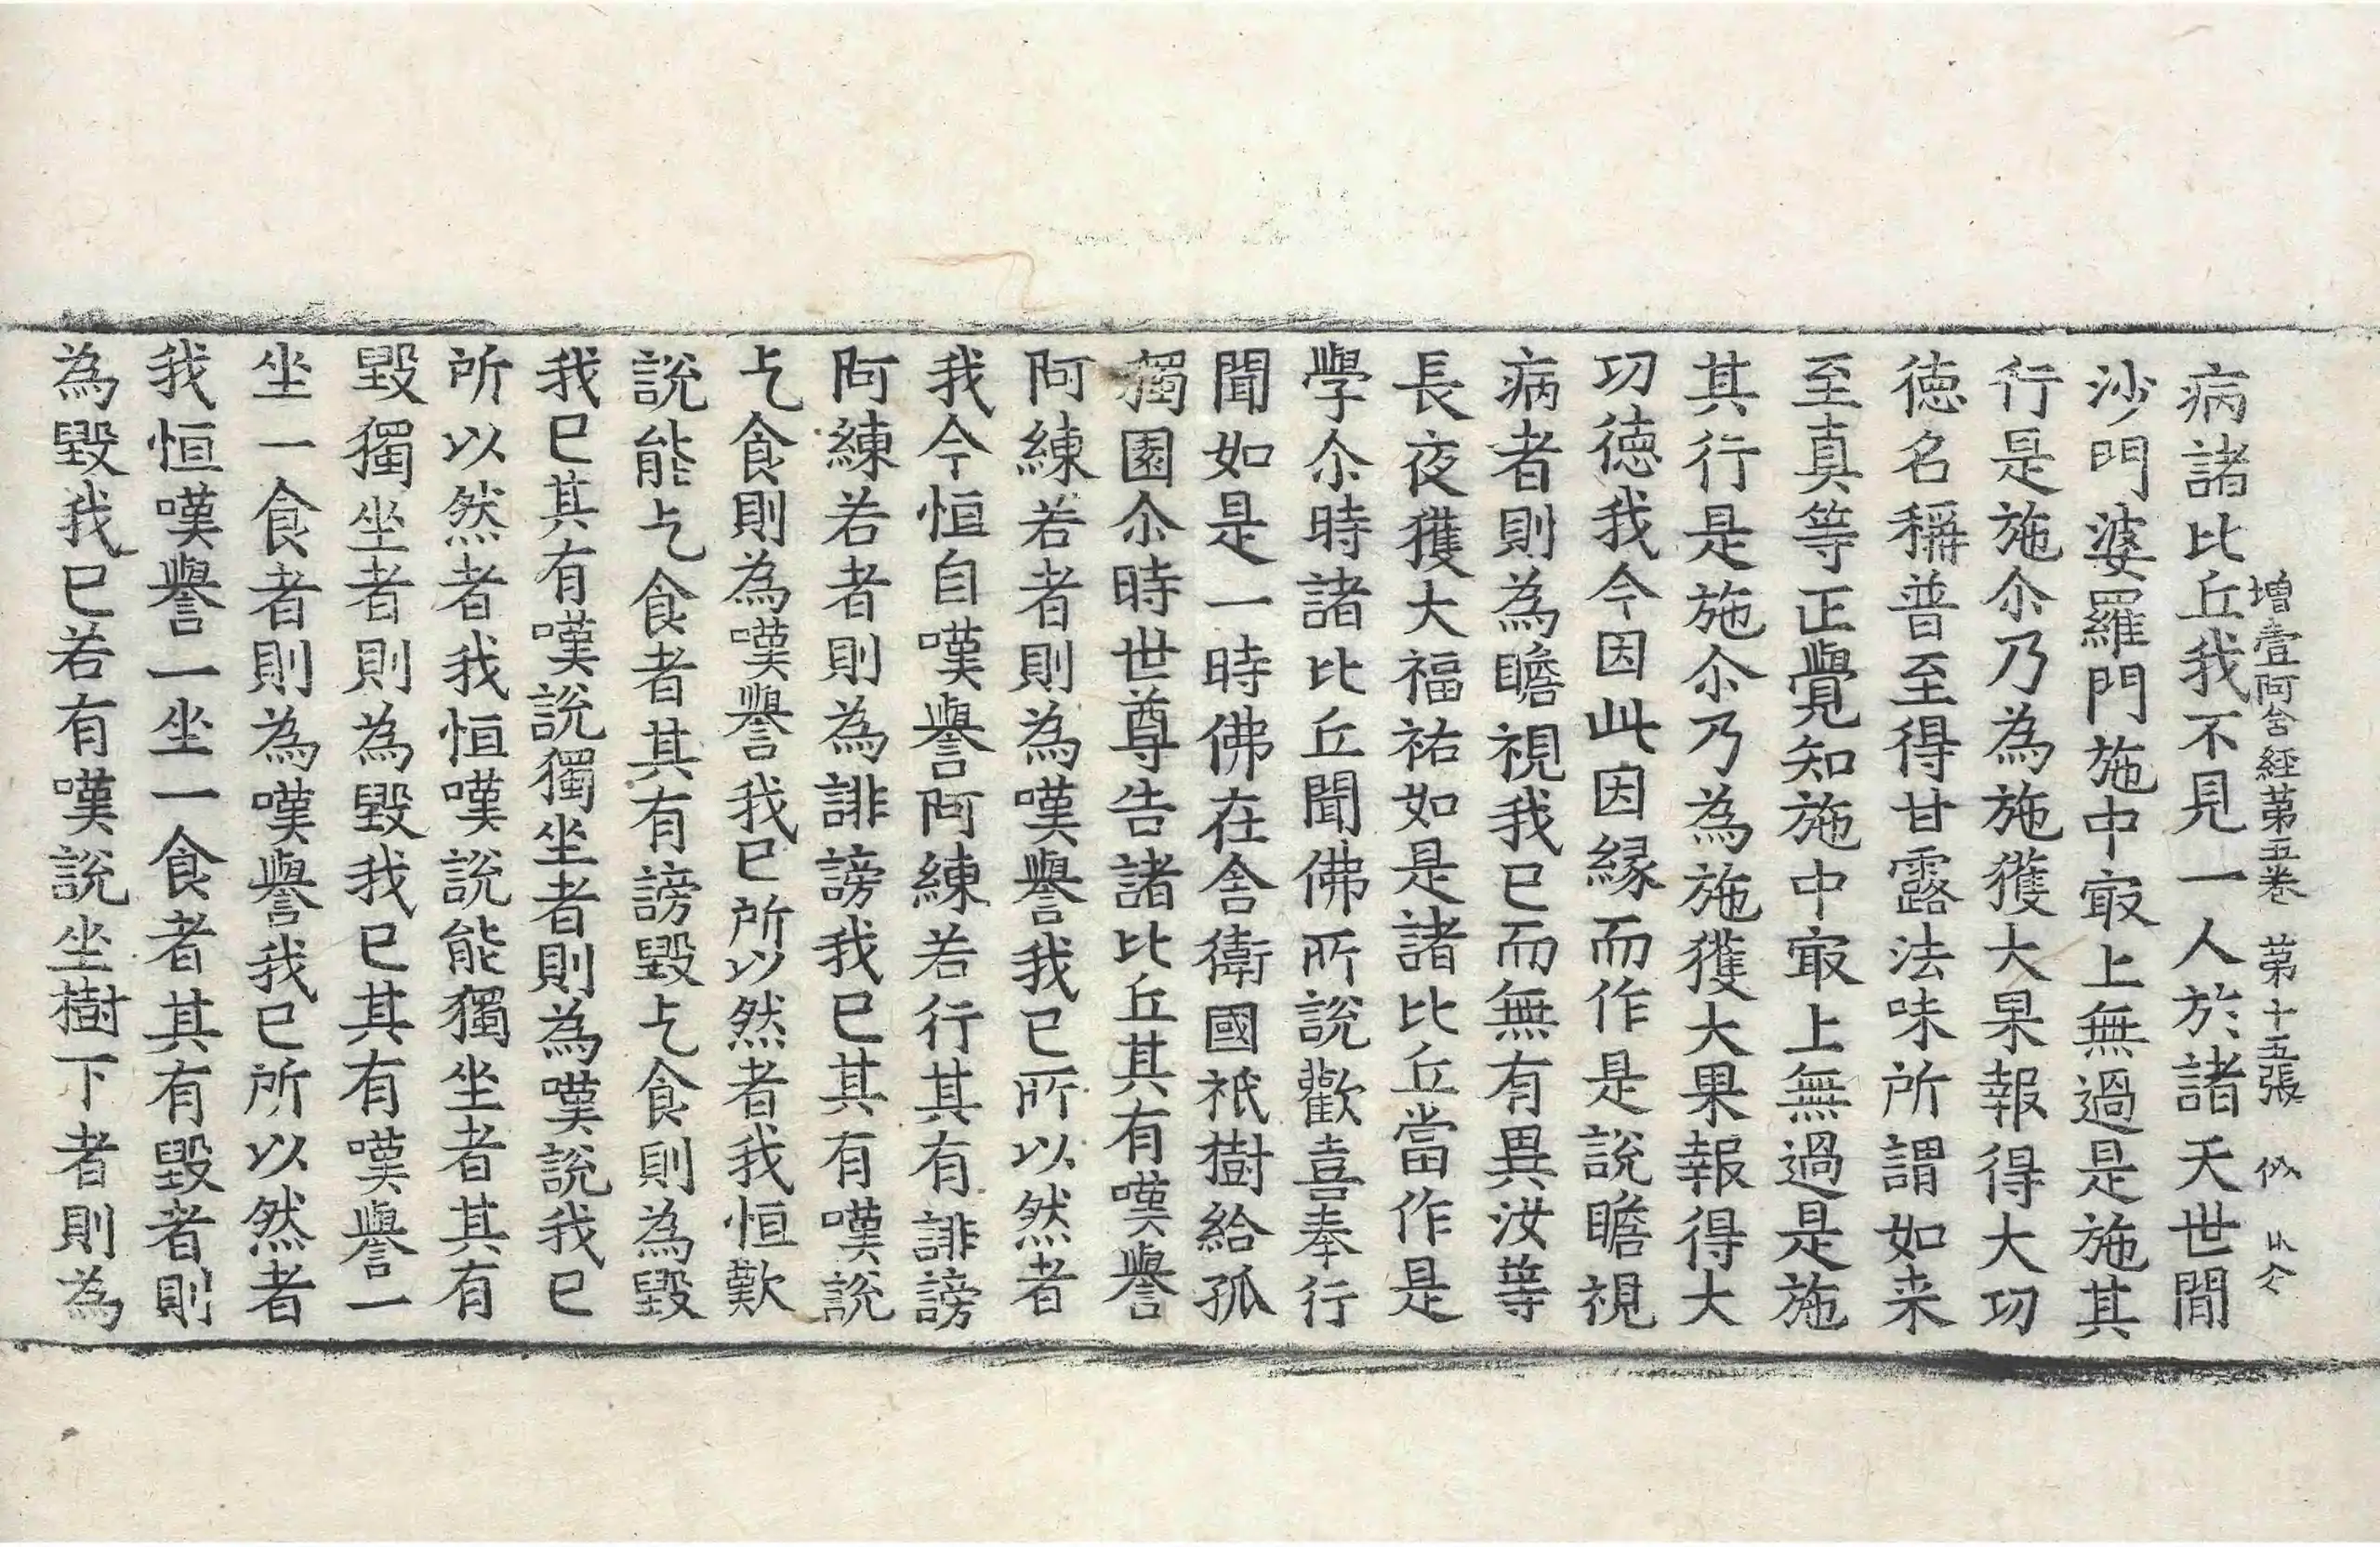 增壹阿含經第五卷 第十五張 似
病諸比丘我不見一人於諸天世間
沙門婆羅門施中㝡上無過是施其
行是施尒乃為施獲大果報得大功
德名稱普至得甘露法味所謂如来
至真等正覺知施中㝡上無過是施
其行是施尒乃為施獲大果報得大
功德我今因此因緣而作是說瞻視
病者則為瞻視我已而無有異汝等
長夜獲大福祐如是諸比丘當作是
學尒時諸比丘聞佛所說歡喜奉行
聞如是一時佛在舍衛國祇樹給孤
獨園尒時世尊告諸比丘其有嘆譽
阿練若者則為嘆譽我已所以然者
我今恒自嘆譽阿練若行其有誹謗
阿練若者則為誹謗我已其有嘆說
乞食則為嘆譽我已所以然者我恒歎
說能乞食者其有謗毀乞食則為毀
我已其有嘆說獨坐者則為嘆說我已
所以然者我恒嘆說能獨坐者其有
毀獨坐者則為毀我已其有嘆譽一
坐一食者則為嘆譽我已所以然者
我恒嘆譽一坐一食者其有毀者則
為毀我已若有嘆說坐樹下者則為